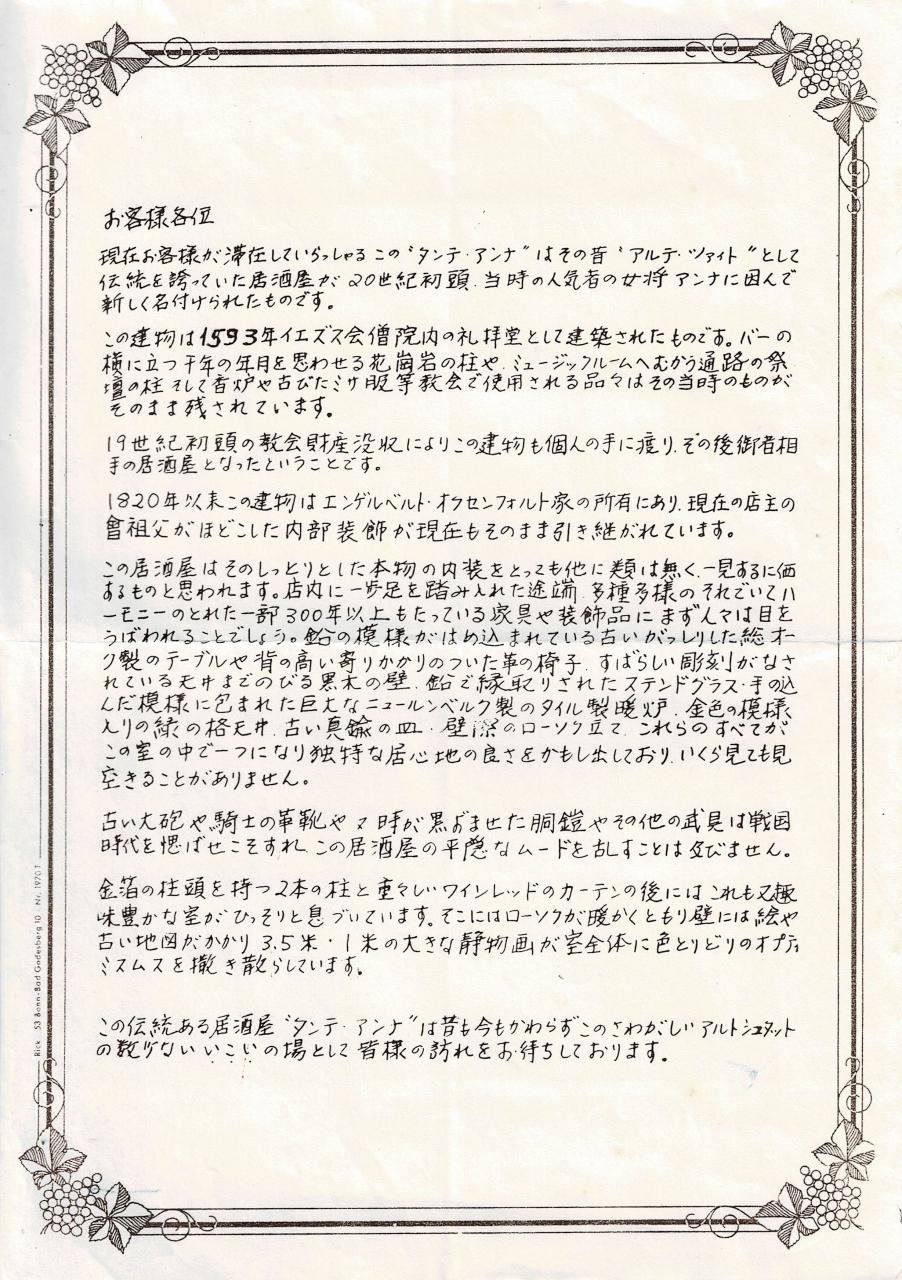 お客様各位
現在お客様が滞在していらっしゃるこの“タンテ・アンナ”はその昔“アルテ・ツァイト”として
伝統を誇っていた居酒屋が20世紀初頭、当時の人気者の女将アンナに因んで
新しく名付けられたものです。
この建物は1593年イエズス会僧院内の礼拝堂として建築されたものです。バーの
横に立つ千年の年月を思わせる花崗岩の柱や、ミュージックルームへむかう通路の祭
壇の柱そして香炉や古びたミサ服等教会で使用される品々はその当時のものが
そのまま残されています。
19世紀初頭の教会財産没収によりこの建物も個人の手に渡り、その後御者相
手の居酒屋となったということです。
1820年以来この建物はエンゲルベルト・オクセンフォルト家の所有にあり、現在の店主の
曾祖父がほどこした内部装飾が現在もそのまま引き継がれています。
この居酒屋はそのしっとりとした本物の内装をとっても他に類は無く、一見するに価
するものと思われます。店内に一歩足を踏み入れた途端、多種多様のそれでいてハ
ーモニーのとれた一部300年以上もたっている家具や装飾品にまず人々は目を
うばわれることでしょう。鉛の模様がはめ込まれている古いがっしりした総オー
ク製のテーブルや背の高い寄りかかりのついた革の椅子、すばらしい彫刻がなさ
れている天井までのびる黒木の壁、鉛で縁取りされたステンドグラス・手の込
んだ模様に包まれた巨大なニュールンベルク製のタイル製暖炉、金色の模様
入りの緑の格天井、古い真鍮の皿・壁際のローソク立て、これらのすべてが
この室の中で一つになり独特な居心地の良さをかもし出しており、いくら見ても見
空きることがありません。
古い大砲や騎士の革靴や 時が黒ずませた胴鎧やその他の武具は戦国
時代を偲ばせこそすれ、この居酒屋の平隠なムードを乱すことは及びません。
金箔の柱頭を持つ2本の柱と重々しいワインレッドのカーテンの後にはこれも又趣
味豊かな室がひっそりと息づいています。そこにはローソクが暖かくともり壁には絵や
古い地図がかかり3.5米・1米の大きな静物画が室全体に色とりどりのオプティ
ミスムスを撒き散らしています。
この伝統ある居酒屋“タンテ・アンナ”は昔も今もかわらずこのさわがしいアルトシュタット
の数少ないいこいの場として皆様の訪れをお待ちしております。
Rick 53 Bonn-Bad Godesberg 10 Nr. 1970 T